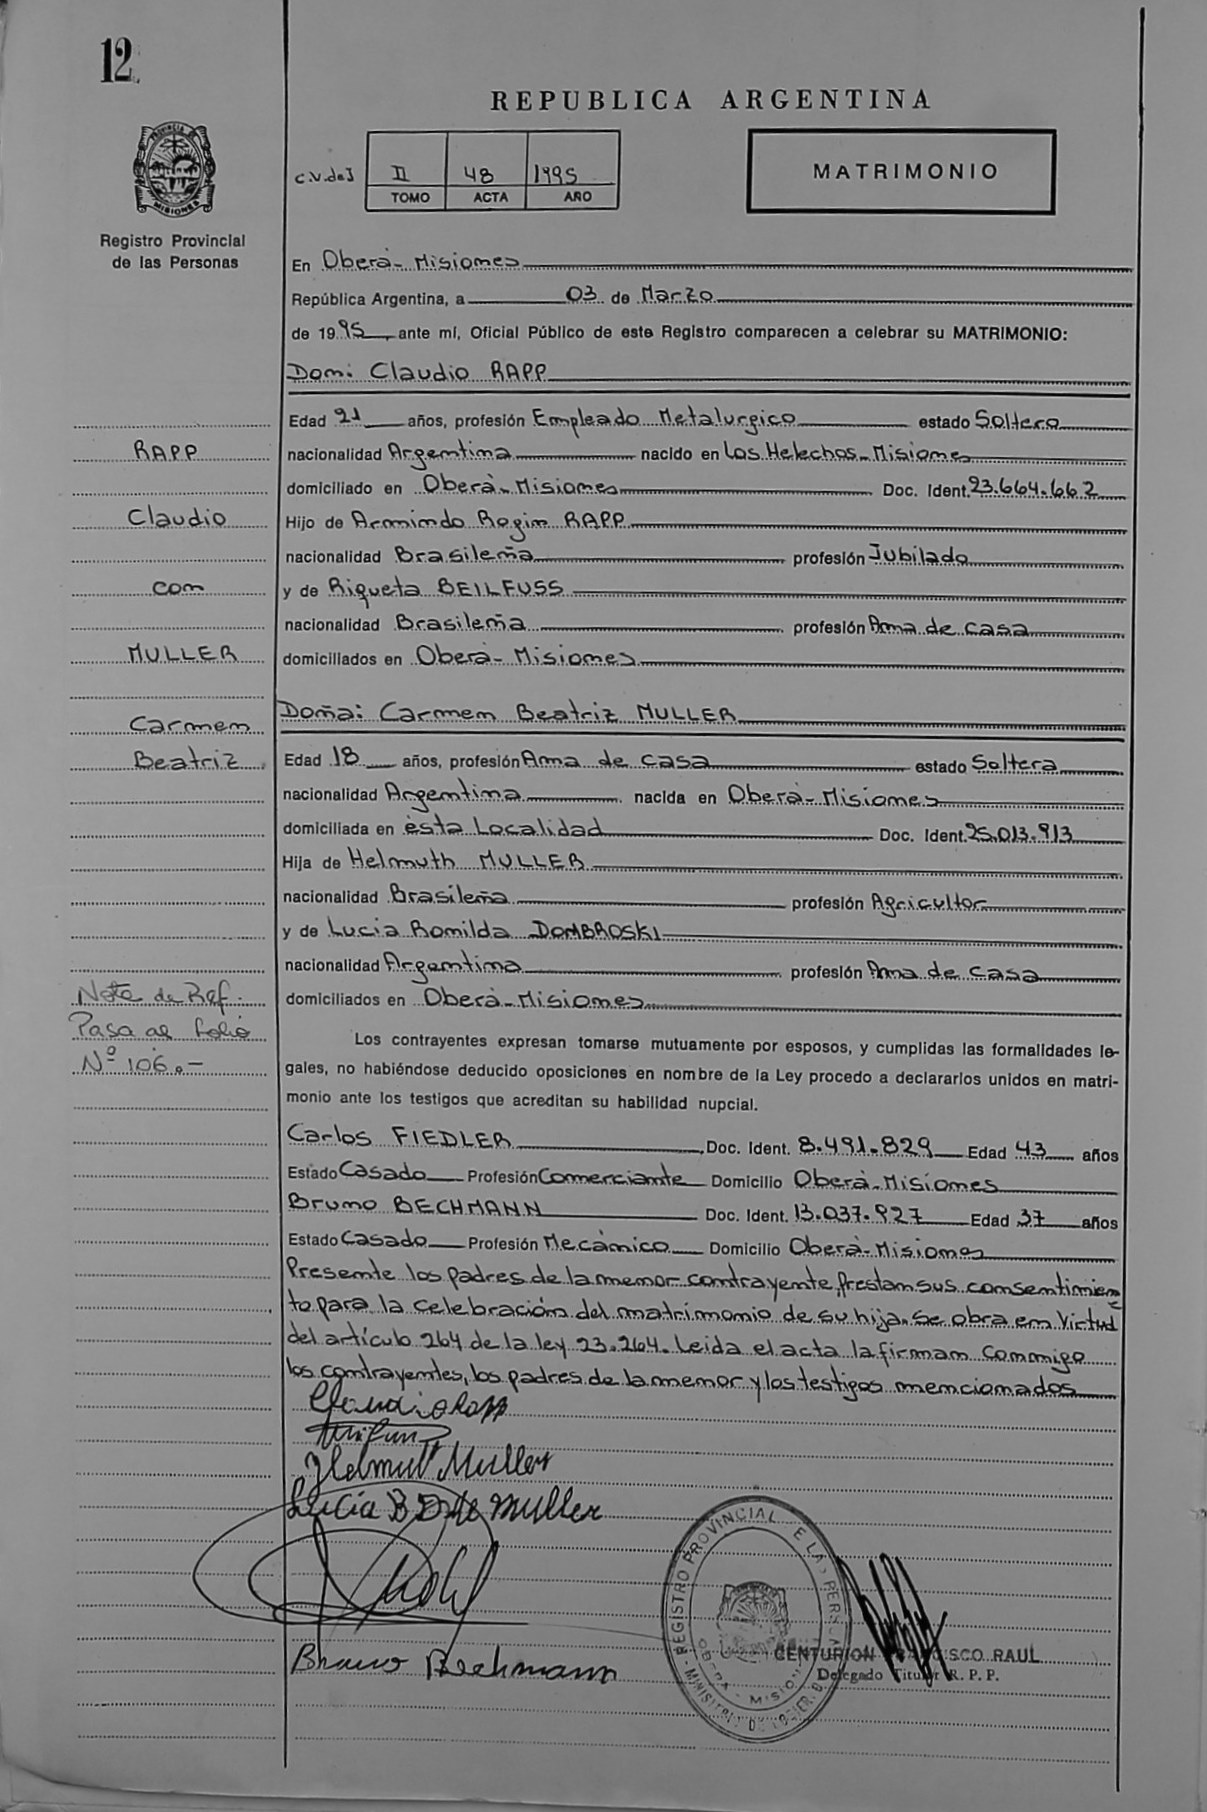 12
REPUBLICA ARGENTINA
C.V.de I
II 48 1995
TOMO ACTA AÑO
MATRIMONIO
PROVINCIA DE MISIONES
Registro Provincial
de las Personas
En Oberá - Misiones
República Argentina, a 03 de Marzo
de 1995, ante mí, Oficial Público de este Registro comparecen a celebrar su MATRIMONIO:
Don: Claudio RAPP
Edad 21 años, profesión Empleado Metalurgico estado Soltero
nacionalidad Argentina nacido en Los Helechos - Misiones
domiciliado en Oberá - Misiones Doc. Ident. 23.664.662
Hijo de Armindo Rogin RAPP
nacionalidad Brasileña profesión Jubilado
y de Riqueta BEILFUSS
nacionalidad Brasileña profesión Ama de casa
domiciliados en Oberá - Misiones
Doña: Carmen Beatriz MULLER
Edad 18 años, profesión Ama de casa estado Soltera
nacionalidad Argentina nacida en Oberá - Misiones
domiciliada en ésta Localidad Doc. Ident. 25.013.913
Hija de Helmuth MULLER
nacionalidad Brasileña profesión Agricultor
y de Lucia Romilda DOMBROSKI
nacionalidad Argentina profesión Ama de casa
domiciliados en Oberá - Misiones
RAPP
Claudio
con
MULLER
Carmen
Beatriz
Nota de Ref.
Pasa al folio
Nº 106.-
Los contrayentes expresan tomarse mutuamente por esposos, y cumplidas las formalidades le-
gales, no habiéndose deducido oposiciones en nombre de la Ley procedo a declararlos unidos en matri-
monio ante los testigos que acreditan su habilidad nupcial.
Carlos FIEDLER, Doc. Ident. 8.491.829 Edad 43 años
Estado Casado Profesión Comerciante Domicilio Oberá - Misiones
Bruno BECHMANN Doc. Ident. 13.037.927 Edad 37 años
Estado Casado Profesión Mecánico Domicilio Oberá - Misiones
Presente los padres de la menor contrayente, prestan sus consentimien
to para la celebración del matrimonio de su hija. Se obra en Virtud
del artículo 264 de la ley 23.264. Leida el acta la firman conmigo
los contrayentes, los padres de la menor y los testigos mencionados
Claudio Rapp
Helmuth Muller
Lucia R D de Muller
Bruno Bechmann
REGISTRO PROVINCIAL DE LAS PERSONAS
OBERA - MISIONES
CENTURION FRANCISCO RAUL
Delegado Titular R. P. P.